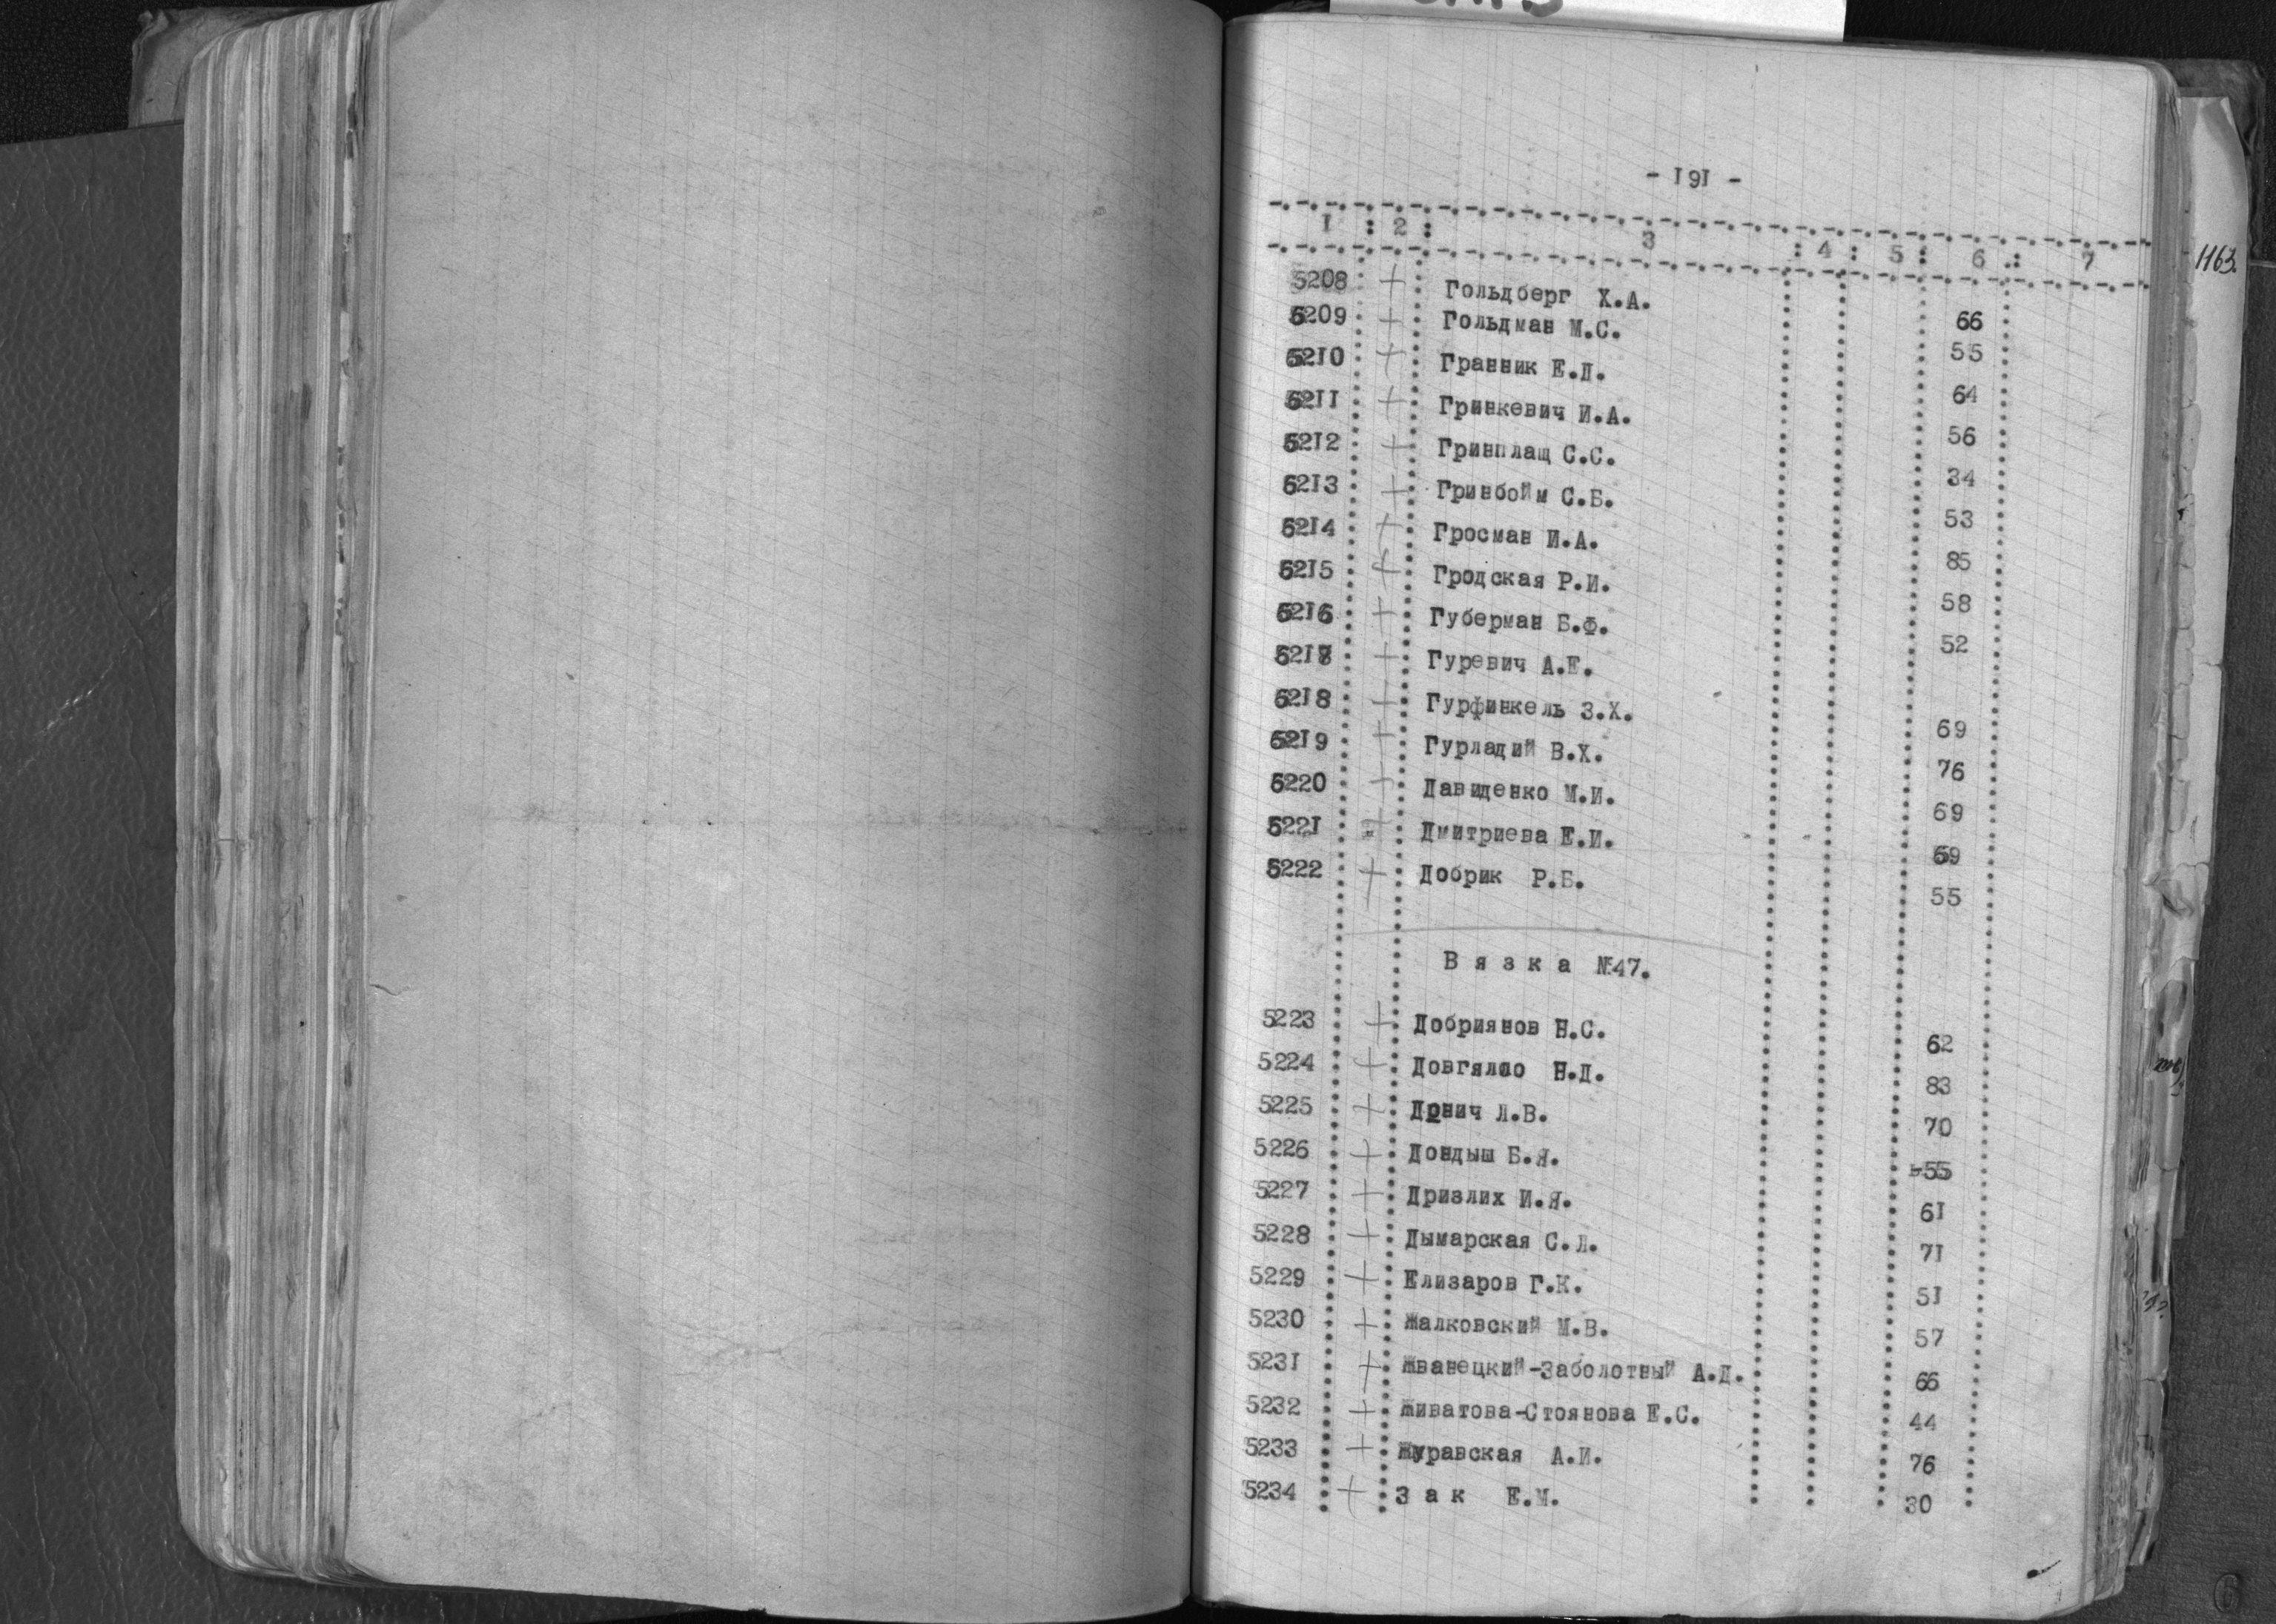 - I9I -
I : 2 : 3 : 4 : 5 : 6 : 7
1163.
5208 + Гольдберг Х.А. 66
5209 + Гольдман М.С. 55
52I0 + Гранник Е.Д. 64
52II + Гринкевич И.А. 56
52I2 + Гринплащ С.С. 34
52I3 + Гринбойм С.Б. 53
52I4 + Гросман И.А. 85
52I5 + Гродская Р.И. 58
52I6 + Губерман Б.Ф. 52
52I7 + Гуревич А.Е.
52I8 + Гурфинкель З.Х. 69
52I9 + Гурладий В.Х. 76
5220 + Давиденко М.И. 69
522I + Дмитриева Е.И.
5222 + Добрик Р.Б. 55
Вязка №47.
5223 + Добриянов Н.С. 62
5224 + Довгялло Н.Д. 83
5225 + Донич Л.В. 70
5226 + Дондыш Б.Я. 55
5227 + Дризлих И.Я. 6I
5228 + Дымарская С.Л. 7I
5229 + Елизаров Г.К. 5I
5230 + Жалковский М.В. 57
523I + Жванецкий-Заболотный А.Д. 66
5232 + Живатова-Стоянова Е.С. 44
5233 + Журавская А.И. 76
5234 + Зак Е.М. 30